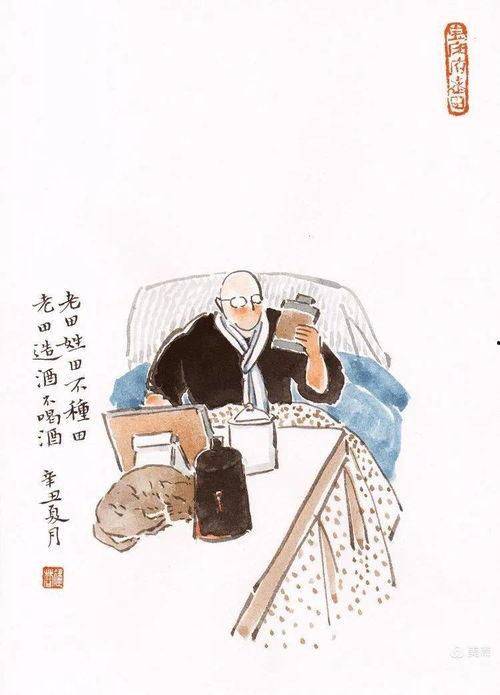 老田姓田不種田
老田造酒不喝酒
辛丑夏月
美篇